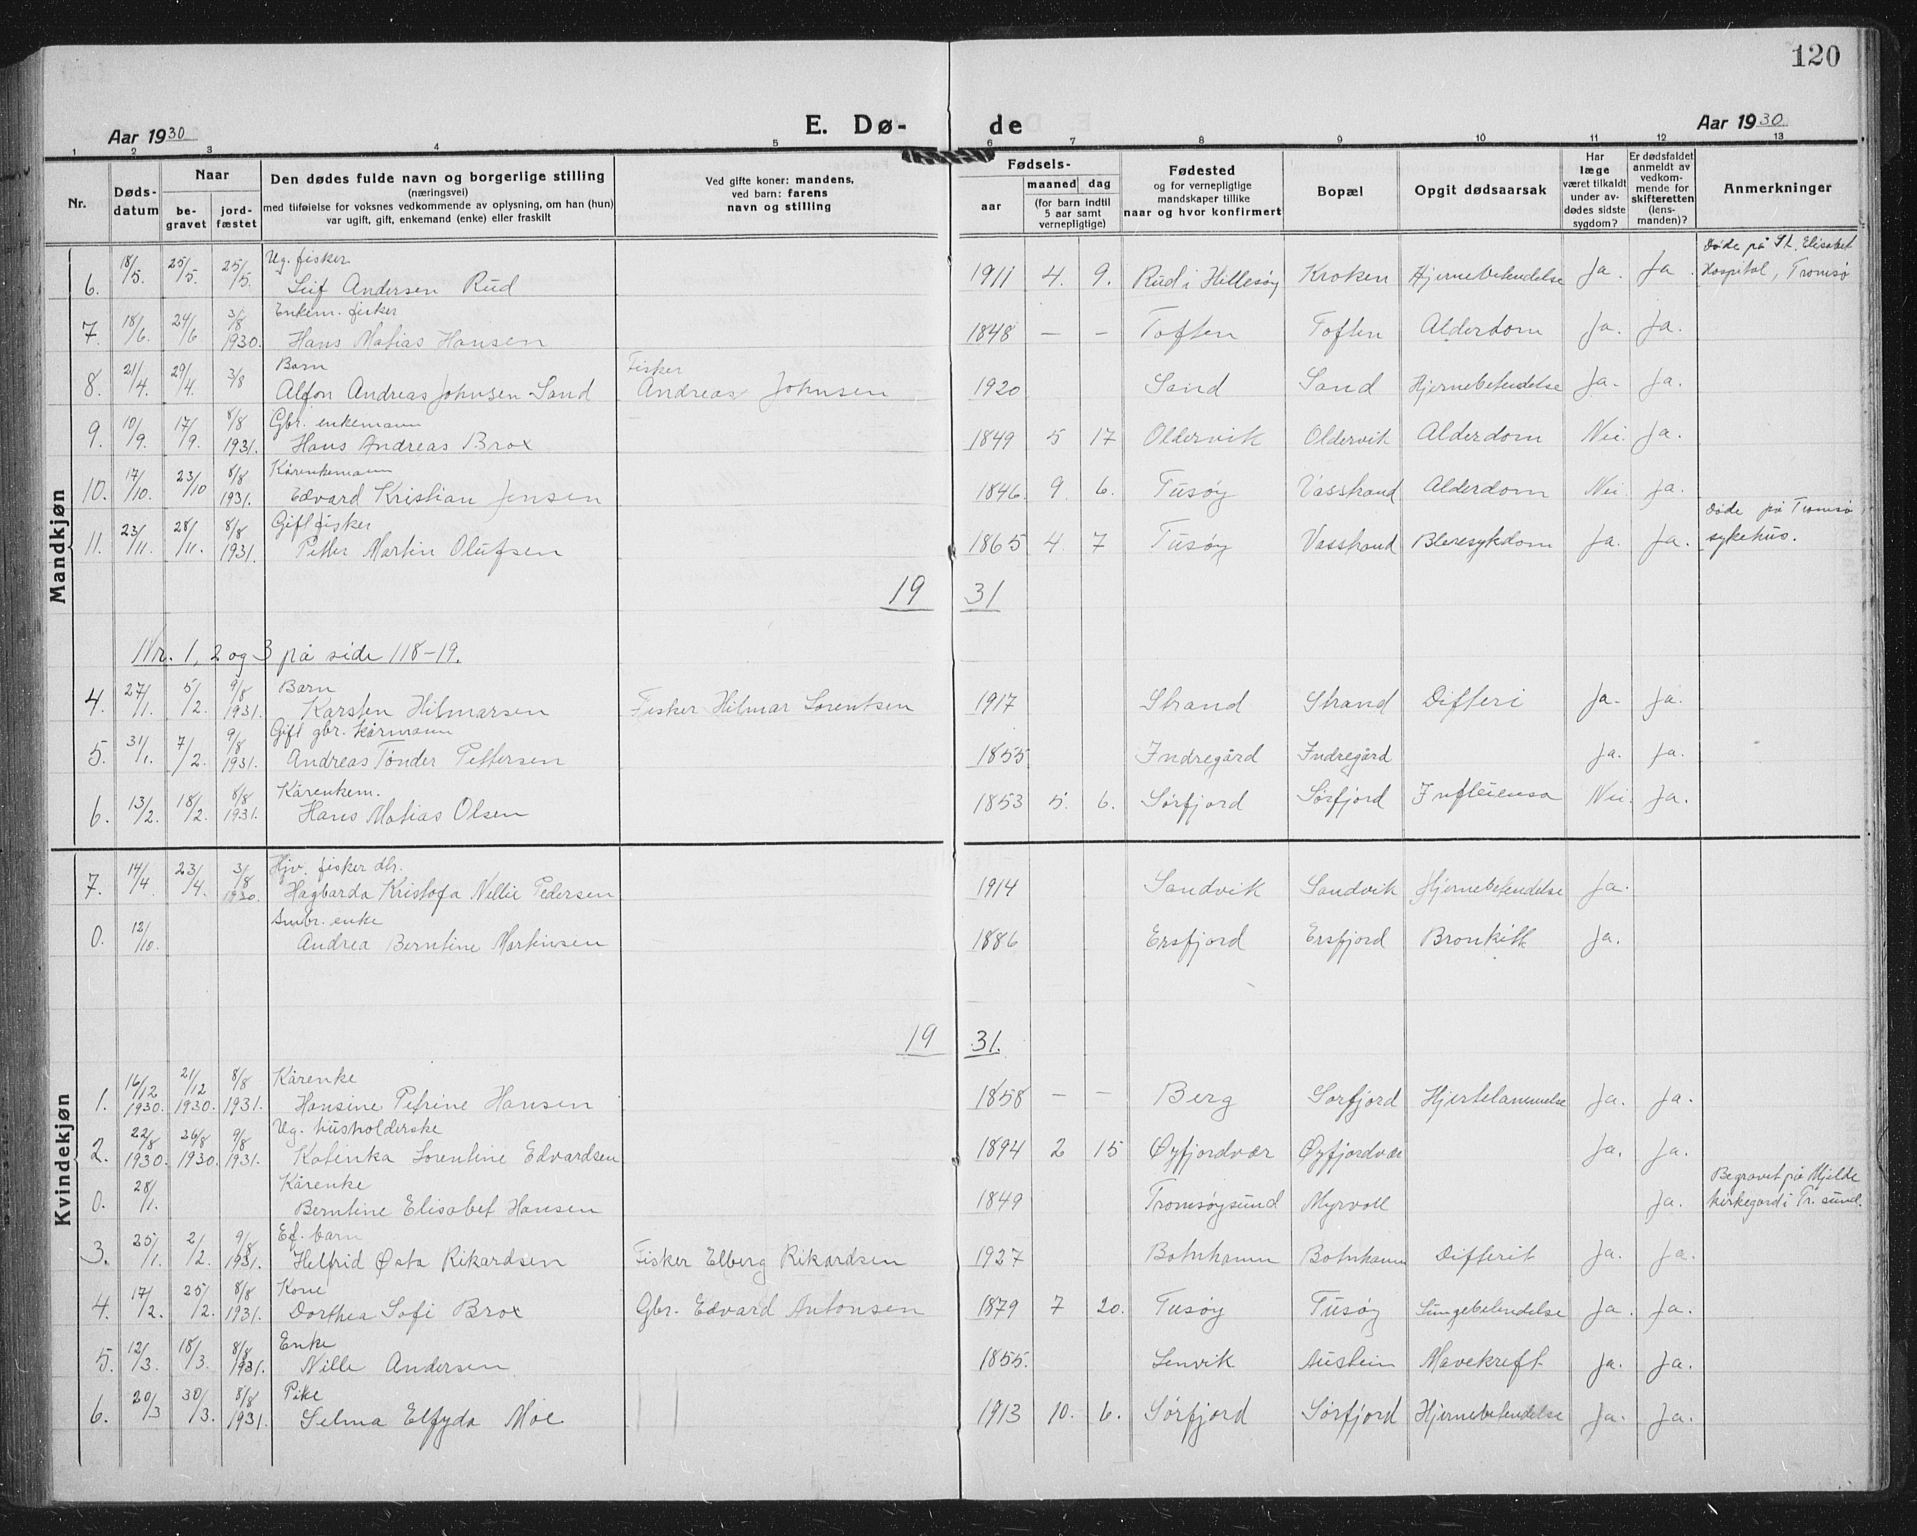 120
Aar 1930
E. Dø-
de
Aar 1930
1 2 3 4 5 6 7 8 9 10 11 12 13
Nr.
Døds-
datum
Naar
be-
gravet
jord-
fæstet
Den dødes fulde navn og borgerlige stilling
(næringsvei)
med tilføielse for voksnes vedkommende av oplysning, om han (hun)
var ugift, gift, enkemand (enke) eller fraskilt
Ved gifte koner: mandens,
ved barn: farens
navn og stilling
Fødsels-
aar
maaned
dag
(for barn indtil
5 aar samt
vernepligtige)
Fødested
og for vernepligtige
mandskaper tillike
naar og hvor konfirmert
Bopæl
Opgit dødsaarsak
Har
læge
været tilkaldt
under av-
dødes sidste
sygdom?
Er dødsfaldet
anmeldt av
vedkom-
mende for
skifteretten
(lens-
manden)?
Anmerkninger
Mandkjøn
6. 18/5. 25/5. 25/5. Ug. fisker
Leif Andersen Rud 1911 4. 9. Rud i Hillesøy Kroken Hjernebetendelse Ja. Ja. Døde på St. Elisabet
Hospital, Tromsø
7. 18/6. 24/6 3/8 1930. Enkem. fisker
Hans Matias Hansen 1848 - - Toften Toften Alderdom Ja. Ja.
8. 21/4. 29/4. 3/8 Barn Fisker
Alfon Andreas Johnsen Sand Andreas Johnsen 1920 Sand Sand Hjernebetendelse Ja. Ja.
9. 10/9. 17/9. 8/8 1931. Gbr. enkemann
Hans Andreas Brox 1849 5 17 Oldervik Oldervik Alderdom Nei Ja.
10. 17/10. 23/10 8/8 1931. Kårenkemann
Edvard Kristian Jensen 1846. 9. 6. Tusøy Vasstrand Alderdom Nei. Ja.
11. 23/11. 28/11. 8/8 1931. Gift fisker
Petter Martin Olufsen 1865 4 7 Tusøy Vasstrand Bleresykdom Ja. Ja. Døde på Tromsø
sykehus.
19 31
Nr. 1, 2 og 3 på side 118-19.
4. 27/1. 5/2. 9/8 1931. Barn
Karsten Hilmarsen Fisker Hilmar Lorentsen 1917 Strand Strand Difteri Ja. Ja.
5. 31/1. 7/2. 9/8 1931. Gift gbr. kårmann
Andreas Tønder Pettersen 1855 Indregård Indregård Ja. Ja.
6. 13/2. 18/2. 8/8 1931. Kårenkem.
Hans Matias Olsen 1853 5. 6. Sørfjord Sørfjord Influensa Nei. Ja.
Kvindekjøn
7. 14/4 23/4. 3/8 1930. Hjv. fisker dtr.
Hagbarda Kristofa Nellie Pedersen 1914 Sandvik Sandvik Hjernebetendelse Ja.
0. 12/10. Småbr. enke
Andrea Berntine Martinsen 1886 Ersfjord Ersfjord Bronkitt Ja.
19 31.
1. 16/12 1930. 21/12 1930. 8/8 1931. Kårenke
Hansine Petrine Hansen 1858 - - Berg Sørfjord Hjertelammelse Ja. Ja.
2. 22/8 1930. 26/8 1930. 9/8 1931. Ug. husholderske
Katinka Lorentine Edvardsen 1894 2 15 Øyfjordvær Øyfjordvær Ja. Ja.
0. 28/1. Kårenke
Berntine Elisabet Hansen 1849 Tromsøysund Myrvoll Ja. Begravet på Mjelde
kirkegård i Tr. sund.
3. 25/1. 2/2. 9/8 1931. Ef. barn
Helfrid Østa Rikardsen Fisker Elberg Rikardsen 1927 Botnhamn Botnhamn Difterit Ja. Ja.
4. 17/2. 25/2. 8/8 1931. Kone
Dorthea Sofi Brox Gbr. Edvard Antonsen 1879 7 20. Tusøy Tusøy Lungebetendelse Ja. Ja.
5. 12/3. 18/3. 8/8 1931. Enke
Nille Andersen 1855. Lenvik Austein Mavekreft Ja. Ja.
6. 20/3 30/3. 8/8 1931. Pike
Selma Elfyda Moe 1913 10. 6. Sørfjord Sørfjord Hjernebetendelse Ja. Ja.